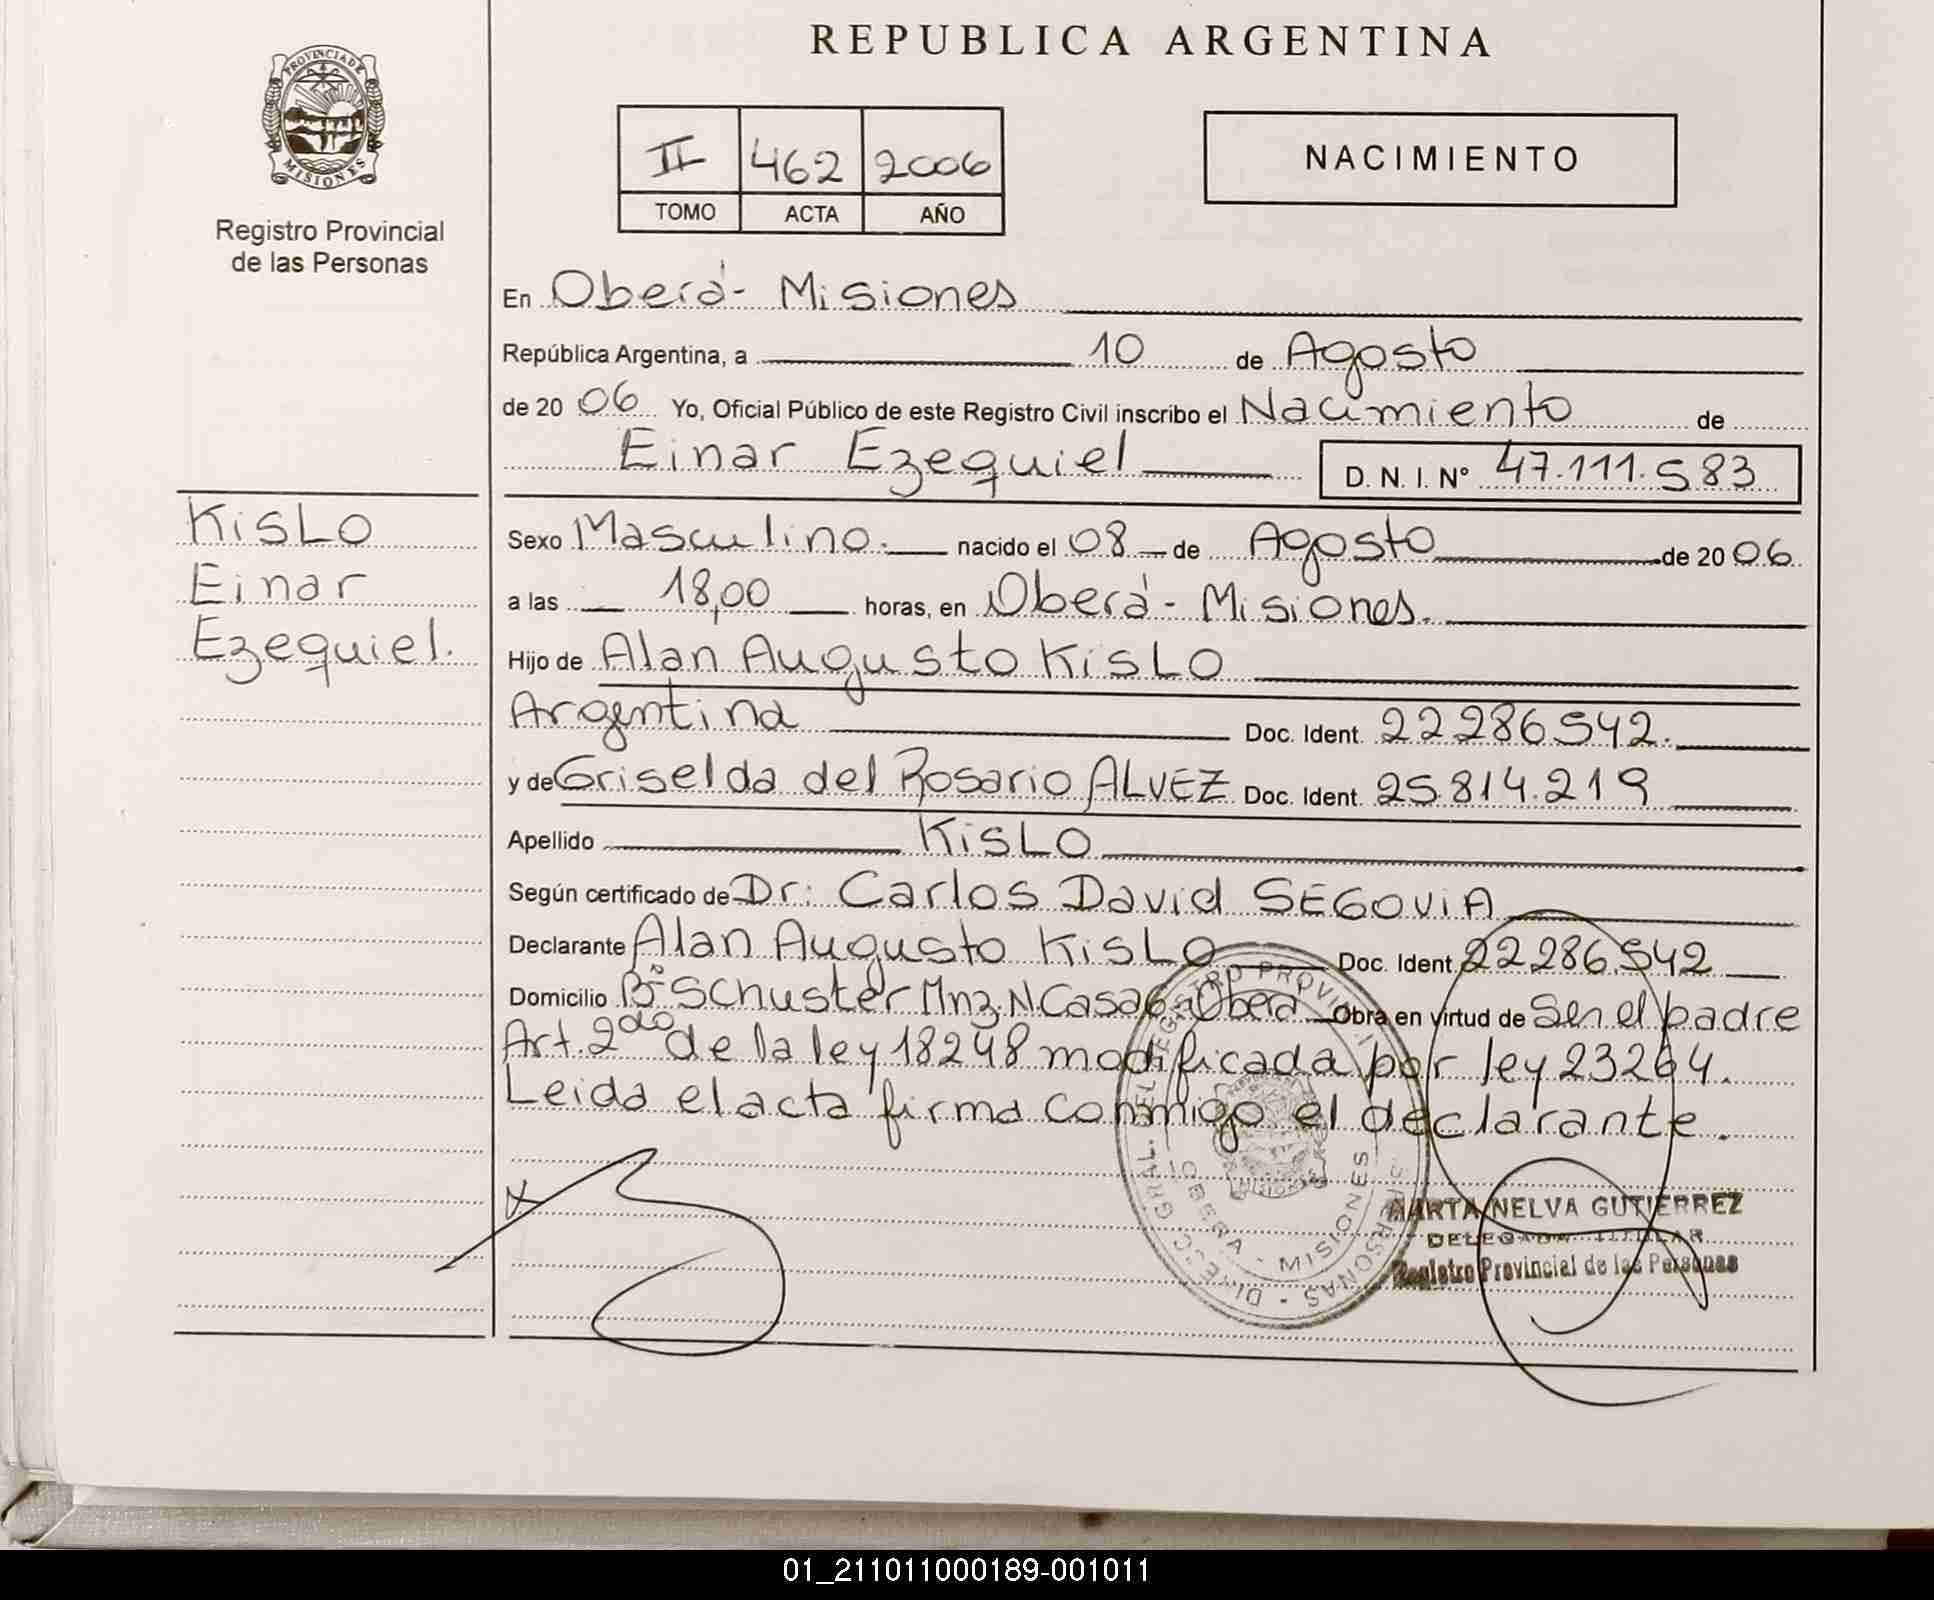 REPUBLICA ARGENTINA
PROVINCIA DE
MISIONES
Registro Provincial
de las Personas
II 462 2006
TOMO ACTA AÑO
NACIMIENTO
En Oberá- Misiones
República Argentina, a 10 de Agosto
de 20 06 Yo, Oficial Público de este Registro Civil inscribo el Nacimiento de
Einar Ezequiel D. N. I. Nº 47.111.583
KisLo
Einar
Ezequiel.
Sexo Masculino. nacido el 08 de Agosto de 20 06
a las 18,00 horas, en Oberá- Misiones.
Hijo de Alan Augusto KisLo
Argentina Doc. Ident. 22286542.
y de Griselda del Rosario ALVEZ Doc. Ident. 25.814.219
Apellido KisLo
Según certificado de Dr: Carlos David SEGOViA
Declarante Alan Augusto KisLo Doc. Ident. 22286.542
Domicilio Bº Schuster Mnz. N Casa 6- Oberá Obra en virtud de Ser el padre
Art. 2do de la ley 18248 modificada por ley 23264.
Leida el acta firma conmigo el declarante.
MARTA NELVA GUTIERREZ
DELEGADA TITULAR
Registro Provincial de las Personas
OBERA - MISIONES
01_211011000189-001011